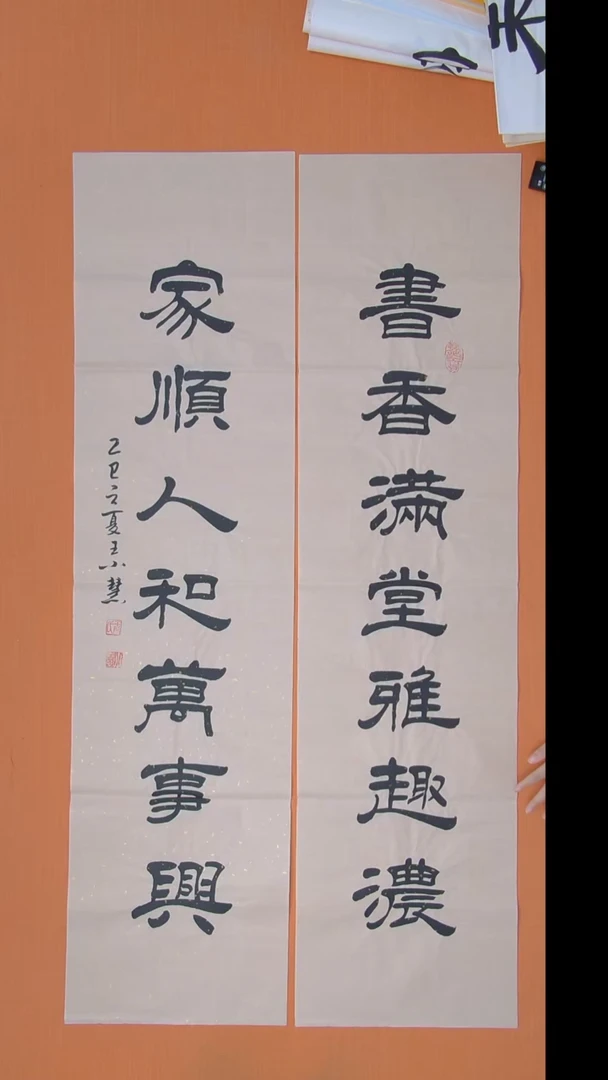 書香滿堂雅趣濃
家順人和萬事興
乙巳立夏王小慧
天